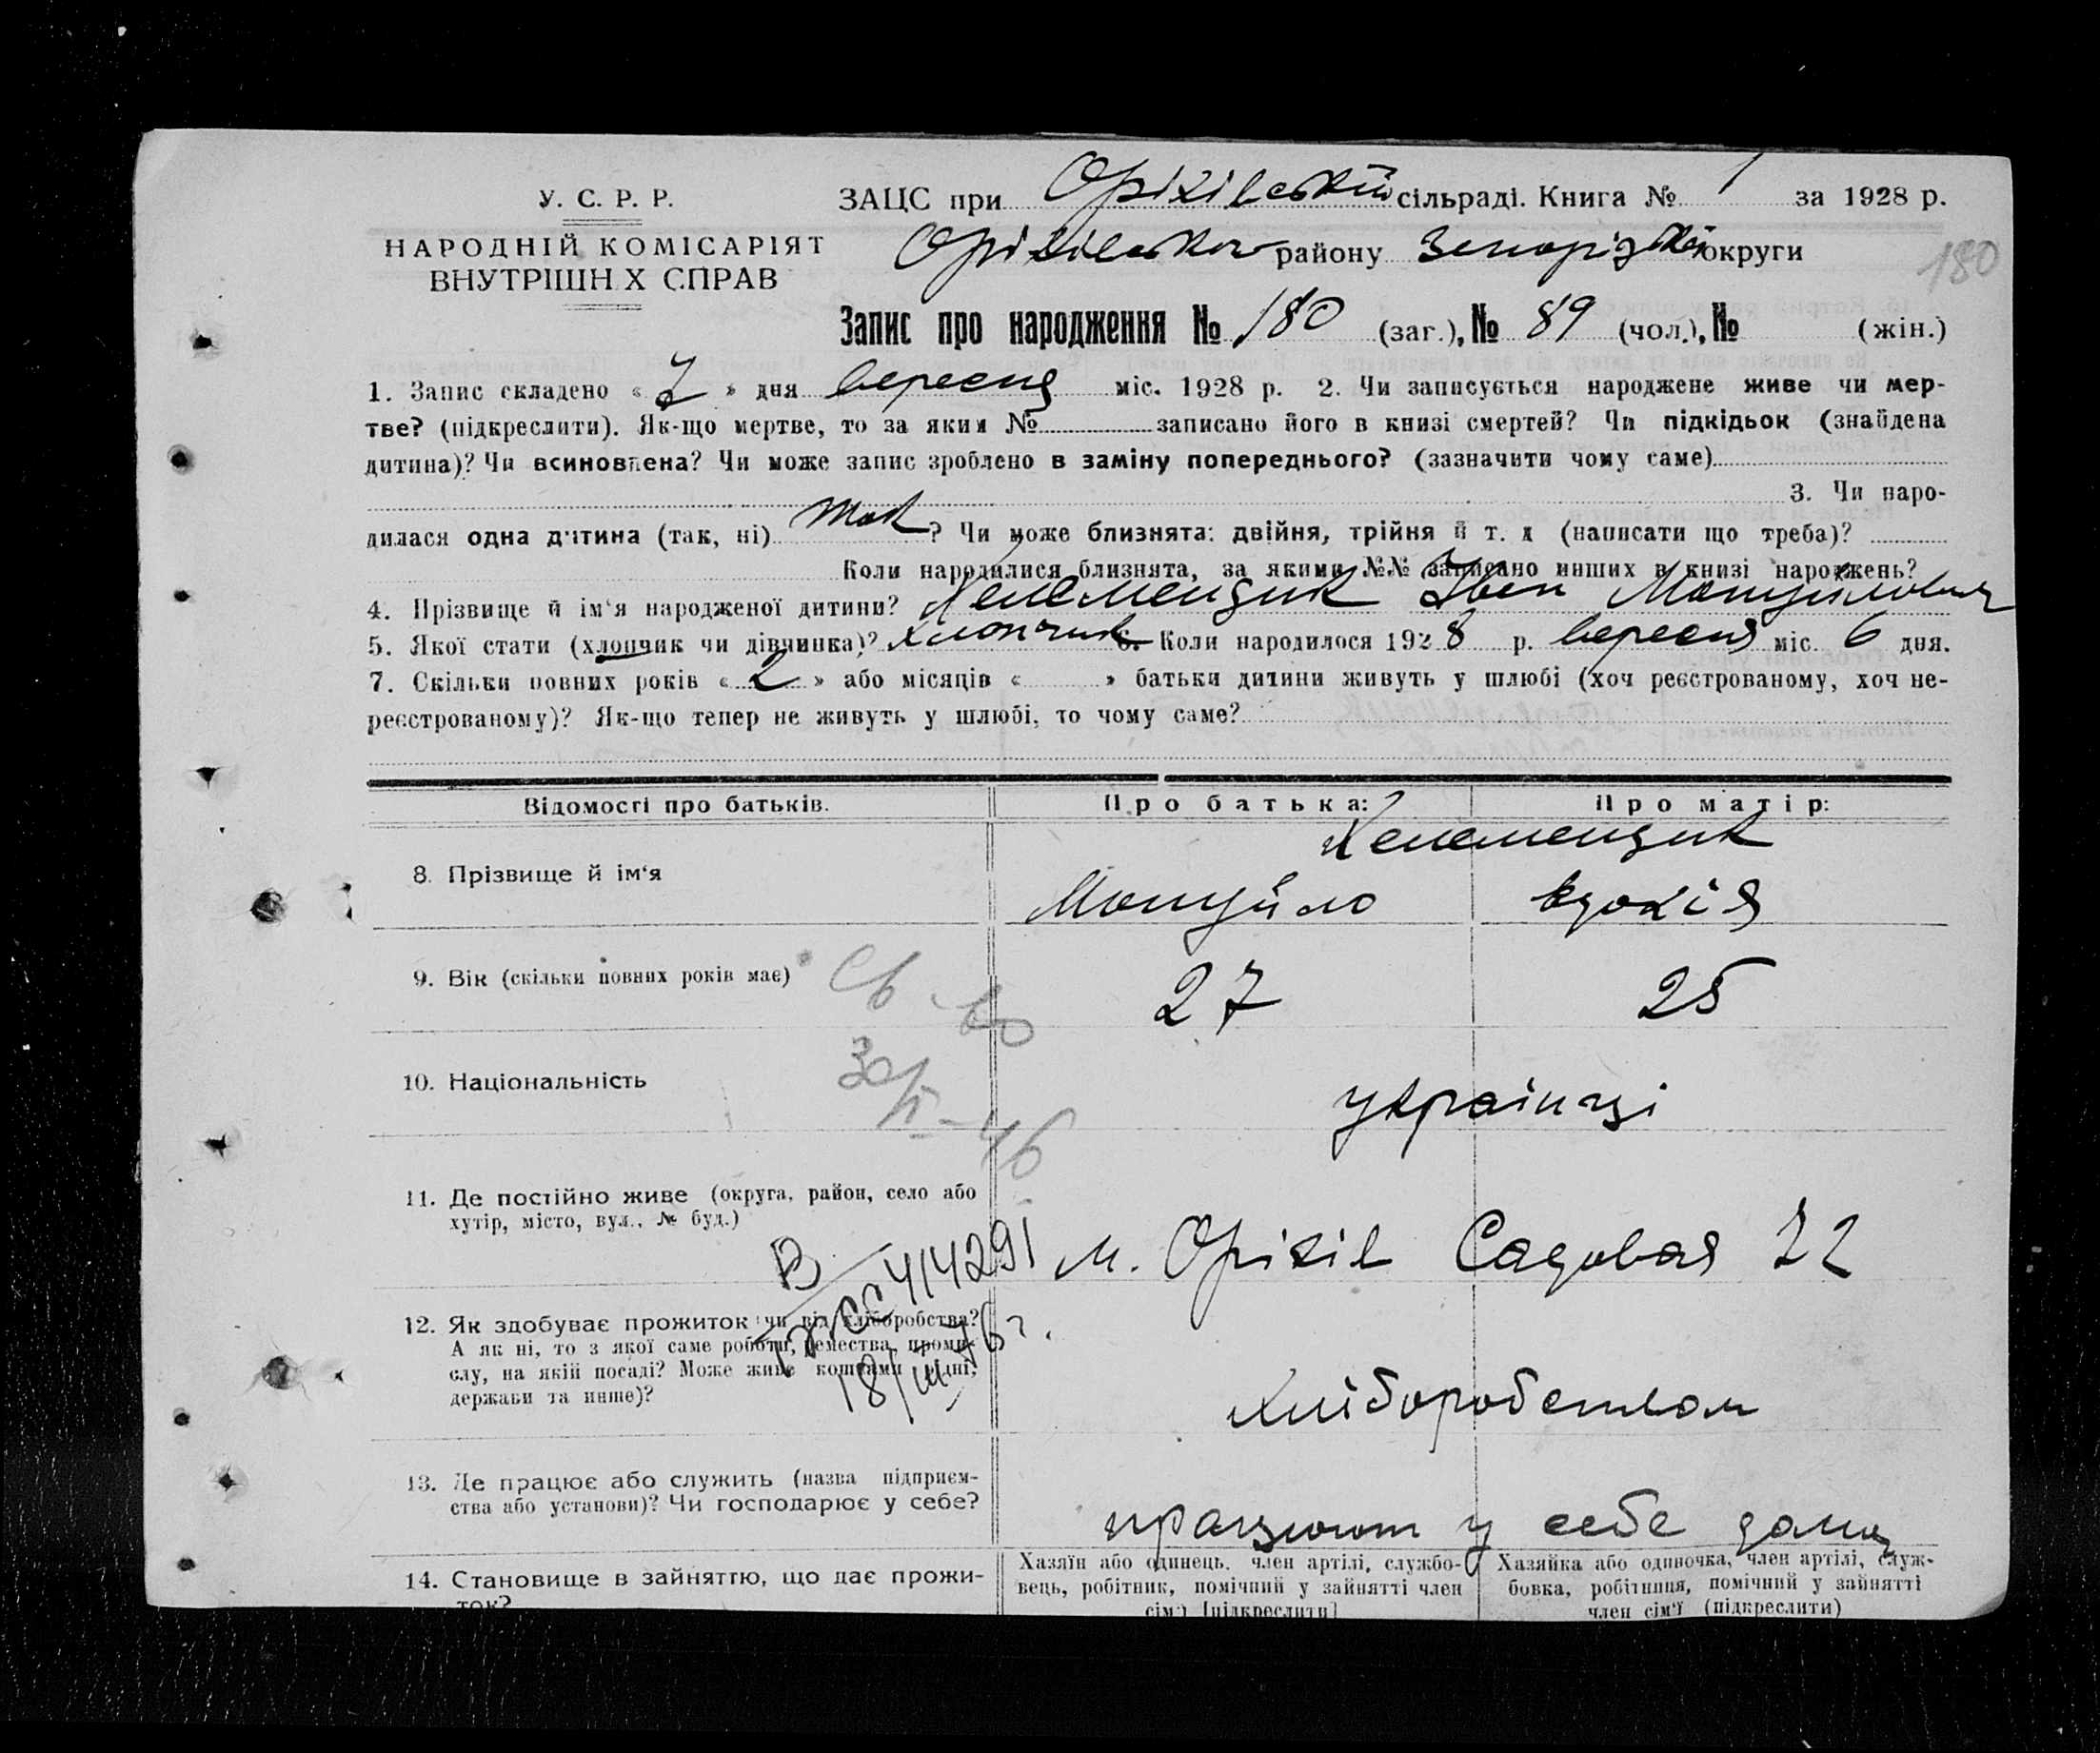 У. С. Р. Р.
НАРОДНІЙ КОМІСАРІЯТ
ВНУТРІШН Х СПРАВ
ЗАЦС при Оріхівській сільраді. Книга № 1 за 1928 р.
Оріхівського району Запорізької округи
180
Запис про народження № 180 (заг.), № 89 (чол.), № (жін.)
1. Запис складено « 7 » дня вересня міс. 1928 р. 2. Чи записується народжене живе чи мер-
тве? (підкреслити). Як-що мертве, то за яким № записано його в книзі смертей? Чи підкідьок (знайдена
дитина)? Чи всиновлена? Чи може запис зроблено в заміну попереднього? (зазначити чому саме)
3. Чи наро-
дилася одна дитина (так, ні) так ? Чи може близнята: двійня, трійня й т. д (написати що треба)?
Коли народилися близнята, за якими №№ записано инших в книзі народжень?
4. Прізвище й ім'я народженої дитини? Іван Мануйлович
5. Якої стати (хлопчик чи дівчинка)? хлопчик 6. Коли народилося 1928 р. вересня міс. 6 дня.
7. Скільки повних років « 2 » або місяців « » батьки дитини живуть у шлюбі (хоч реєстрованому, хоч не-
реєстрованому)? Як-що тепер не живуть у шлюбі, то чому саме?
Відомості про батьків. Про батька: Про матір:
8. Прізвище й ім'я
Мануйло Вдокія
9. Вік (скільки повних років має) 27 25
Св-во
10. Національність українці
30/І-46
11. Де постійно живе (округа, район, село або
хутір, місто, вул., № буд.)
м. Оріхів Садовая 22
414291
12. Як здобуває прожиток чи від хліборобства?
А як ні, то з якої саме роботи, ремества, проми-
слу, на якій посаді? Може живе коштами рідні,
держави та инше)?
18/ІІІ 46 г.
хліборобством
13. Де працює або служить (назва підприєм-
ства або установи)? Чи господарює у себе?
працюют у себе дома
14. Становище в зайняттю, що дає прожи-
ток?
Хазяїн або одинець, член артілі, службо-
вець, робітник, помічний у зайнятті член
сім'ї [підкреслити]
Хазяйка або одиночка, член артілі, служ-
бовка, робітниця, помічний у зайнятті
член сім'ї (підкреслити)